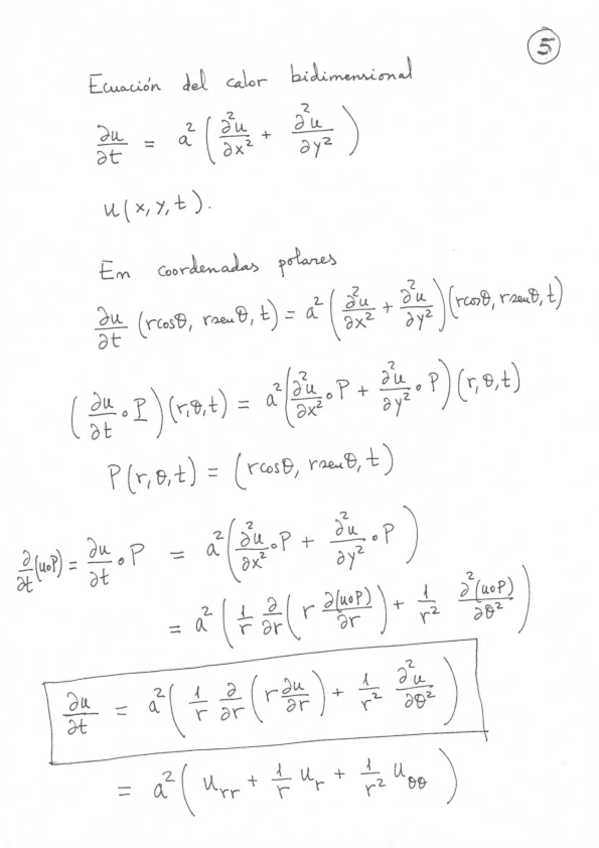 5
Ecuación del calor bidimensional
∂u/∂t = a² ( ∂²u/∂x² + ∂²u/∂y² )
u(x,y,t).
En coordenadas polares
∂u/∂t (rcosθ, rsenθ, t) = a² ( ∂²u/∂x² + ∂²u/∂y² ) (rcosθ, rsenθ, t)
( ∂u/∂t ∘ P ) (r,θ,t) = a² ( ∂²u/∂x² ∘ P + ∂²u/∂y² ∘ P ) (r,θ,t)
P(r,θ,t) = (rcosθ, rsenθ, t)
∂/∂t (u∘P) = ∂u/∂t ∘ P = a² ( ∂²u/∂x² ∘ P + ∂²u/∂y² ∘ P )
= a² ( 1/r ∂/∂r ( r ∂(u∘P)/∂r ) + 1/r² ∂²(u∘P)/∂θ² )
∂u/∂t = a² ( 1/r ∂/∂r ( r ∂u/∂r ) + 1/r² ∂²u/∂θ² )
= a² ( u_rr + 1/r u_r + 1/r² u_θθ )